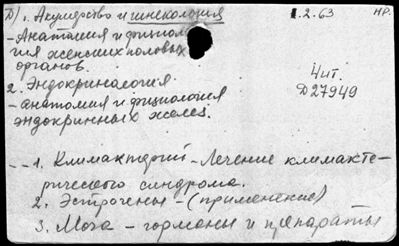 Д) 1. Акушерство и гинекология 1.2.63 НР.
- Анатомия и физиоло
гия женских половых
органов.
Чит.
Д27949
2. Эндокриналогия.
- анатомия и физиология
эндокринных желез.
-- 1. Климактерий - Лечение климакте-
рического синдрома.
2. Эстрогены - (применение)
3. Моча - гормоны и препараты